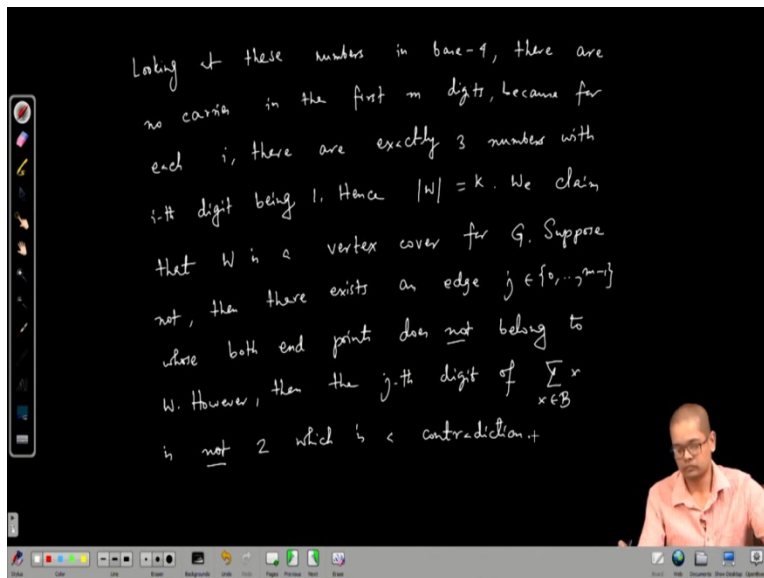 Looking at these numbers in base-4, there are
no carries in the first m digits, because for
each i, there are exactly 3 numbers with
i-th digit being 1. Hence |W| = k. We claim
that W is a vertex cover for G. Suppose
not, then there exists an edge j ∈ {0,..,m-1}
whose both end points does not belong to
W. However, then the j-th digit of ∑ x
x∈B
is not 2 which is a contradiction.
Stylus
Color
Line
Eraser
Backgrounds
Undo
Redo
Pages
Previous
Next
Erase
Board
Web
Documents
Show Desktop